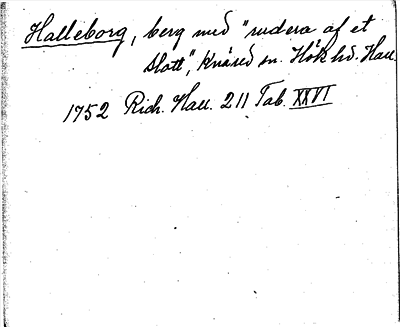 Halleborg, berg med "rudera af et
slott", Knäred sn. Höks hd. Hall.
1752 Rich. Hall. 211 Tab. XXVI